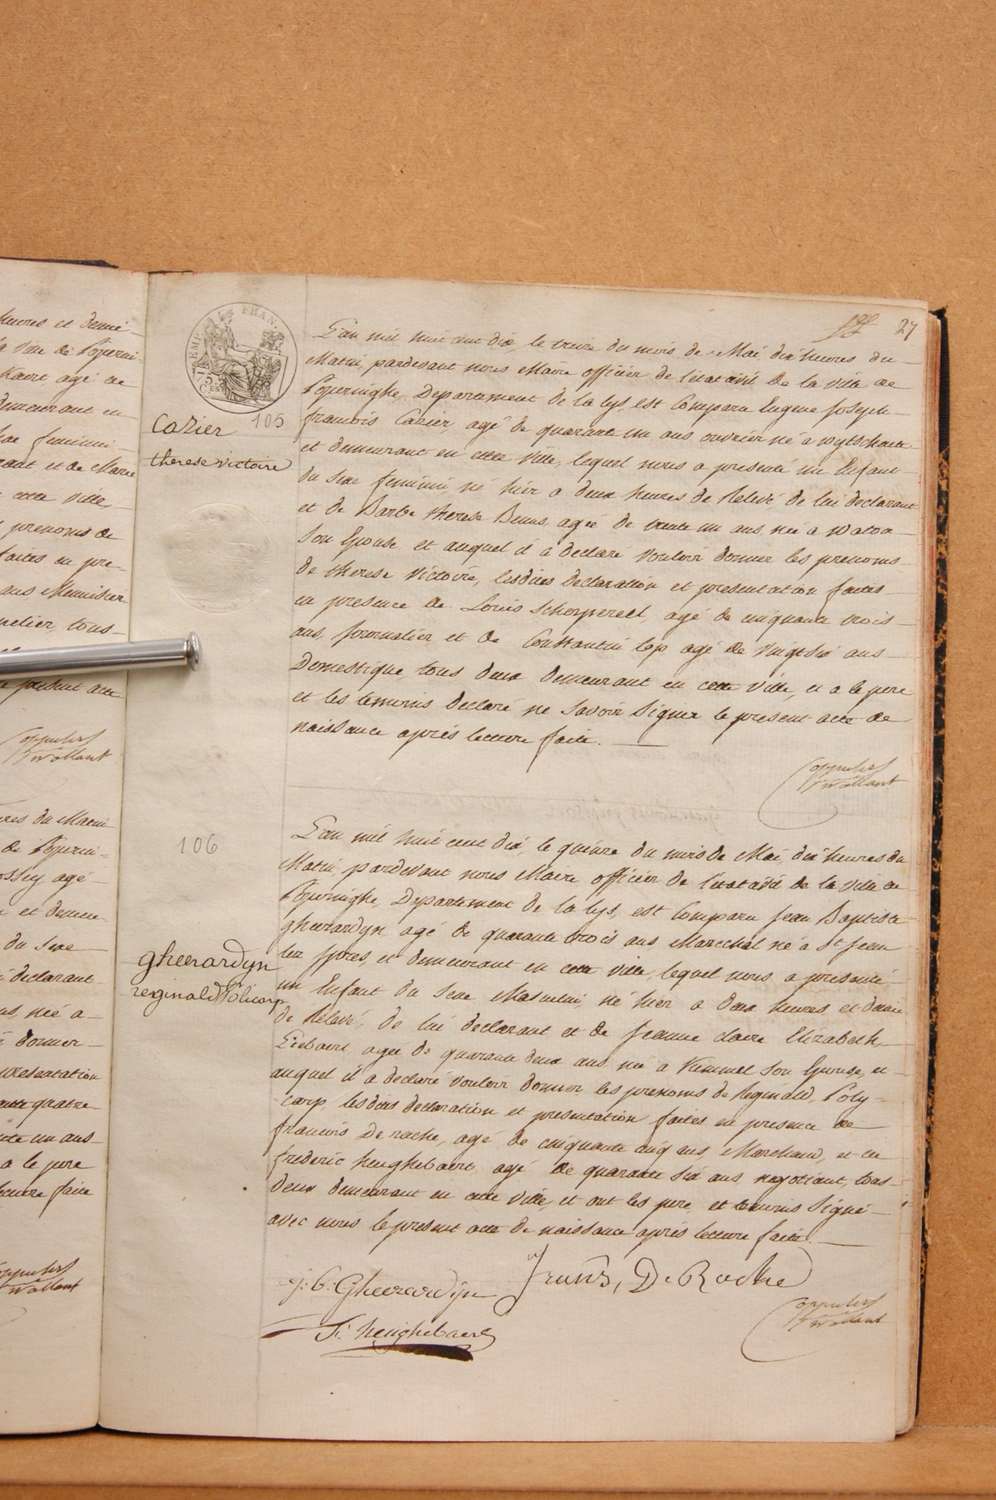 heures et demie
la ville de Poperin-
agé de
demeurant en
sexe feminin
et de Marie
cette ville,
prenoms de
faites en pre-
ans Menuisier
tous
present acte
27
L'an mil huit cent dix le treize du mois de Mai dix heures du
Matin, pardevant nous Maire officier de l'etat civil de la ville de
Poperinghe, Departement de la lys, est Comparu Eugene Joseph
francois Cazier agé de quarante un ans ouvrier né a wytschaete
et demeurant en cette ville, lequel nous a presenté un Enfant
du sexe feminin né hier a deux heures de Relevé de lui declarant
et de Barbe therese Beuns agée de trente un ans née a watou
son Epouse et auquel il a declaré vouloir donner les prenoms
de therese victoire, lesdites declaration et presentation faites
en presence de Louis Scherpereel, agé de cinquante trois
ans, journalier et de Constantin top agé de vingt six ans
Domestique tous deux demeurant en cette ville, et a le pere
et les temoins declaré ne savoir signer le present acte de
naissance après lecture faite.
105
Cazier
therese victoire
106
gheerardyn
reginald Policarp
L'an mil huit cent dix, le quinze du mois de Mai, dix heures du
Matin, pardevant nous Maire officier de l'etat civil de la ville de
Poperinghe, Departement de la lys, est Comparu Jean Baptiste
gheerardyn agé de quarante trois ans Marechal né a St Jean
lez ypres, et demeurant en cette ville, lequel nous a presenté
un Enfant du sexe Masculin né hier a deux heures et demie
de Relevé, de lui declarant et de jeanne claire Elizabeth
agée de quarante deux ans née a Kemmel son Epouse, et
auquel il a declaré vouloir donner les prenoms de Reginald, Poly-
carp, lesdites declaration et presentation faites en presence de
francois De roche, agé de cinquante cinq ans, Marchand, et de
frederic heughebaert agé de quarante six ans negotiant, tous
deux demeurant en cette ville, et ont les pere, et temoins Signé
avec nous le present acte de naissance après lecture faite.
j: b: Gheerardyn
Frans, De Roche
Fr: heughebaert